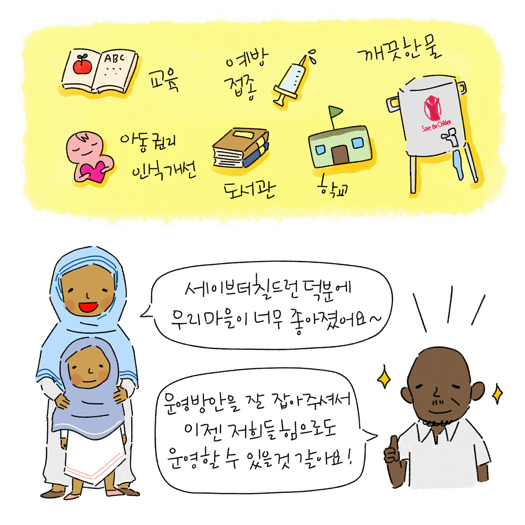 ABC
교육
예방
접종
깨끗한물
Save the Children
아동권리
인식개선
도서관
학교
세이브더칠드런 덕분에
우리마을이 너무 좋아졌어요~
운영방안을 잘 잡아주셔서
이젠 저희들힘으로도
운영할 수 있을것 같아요!